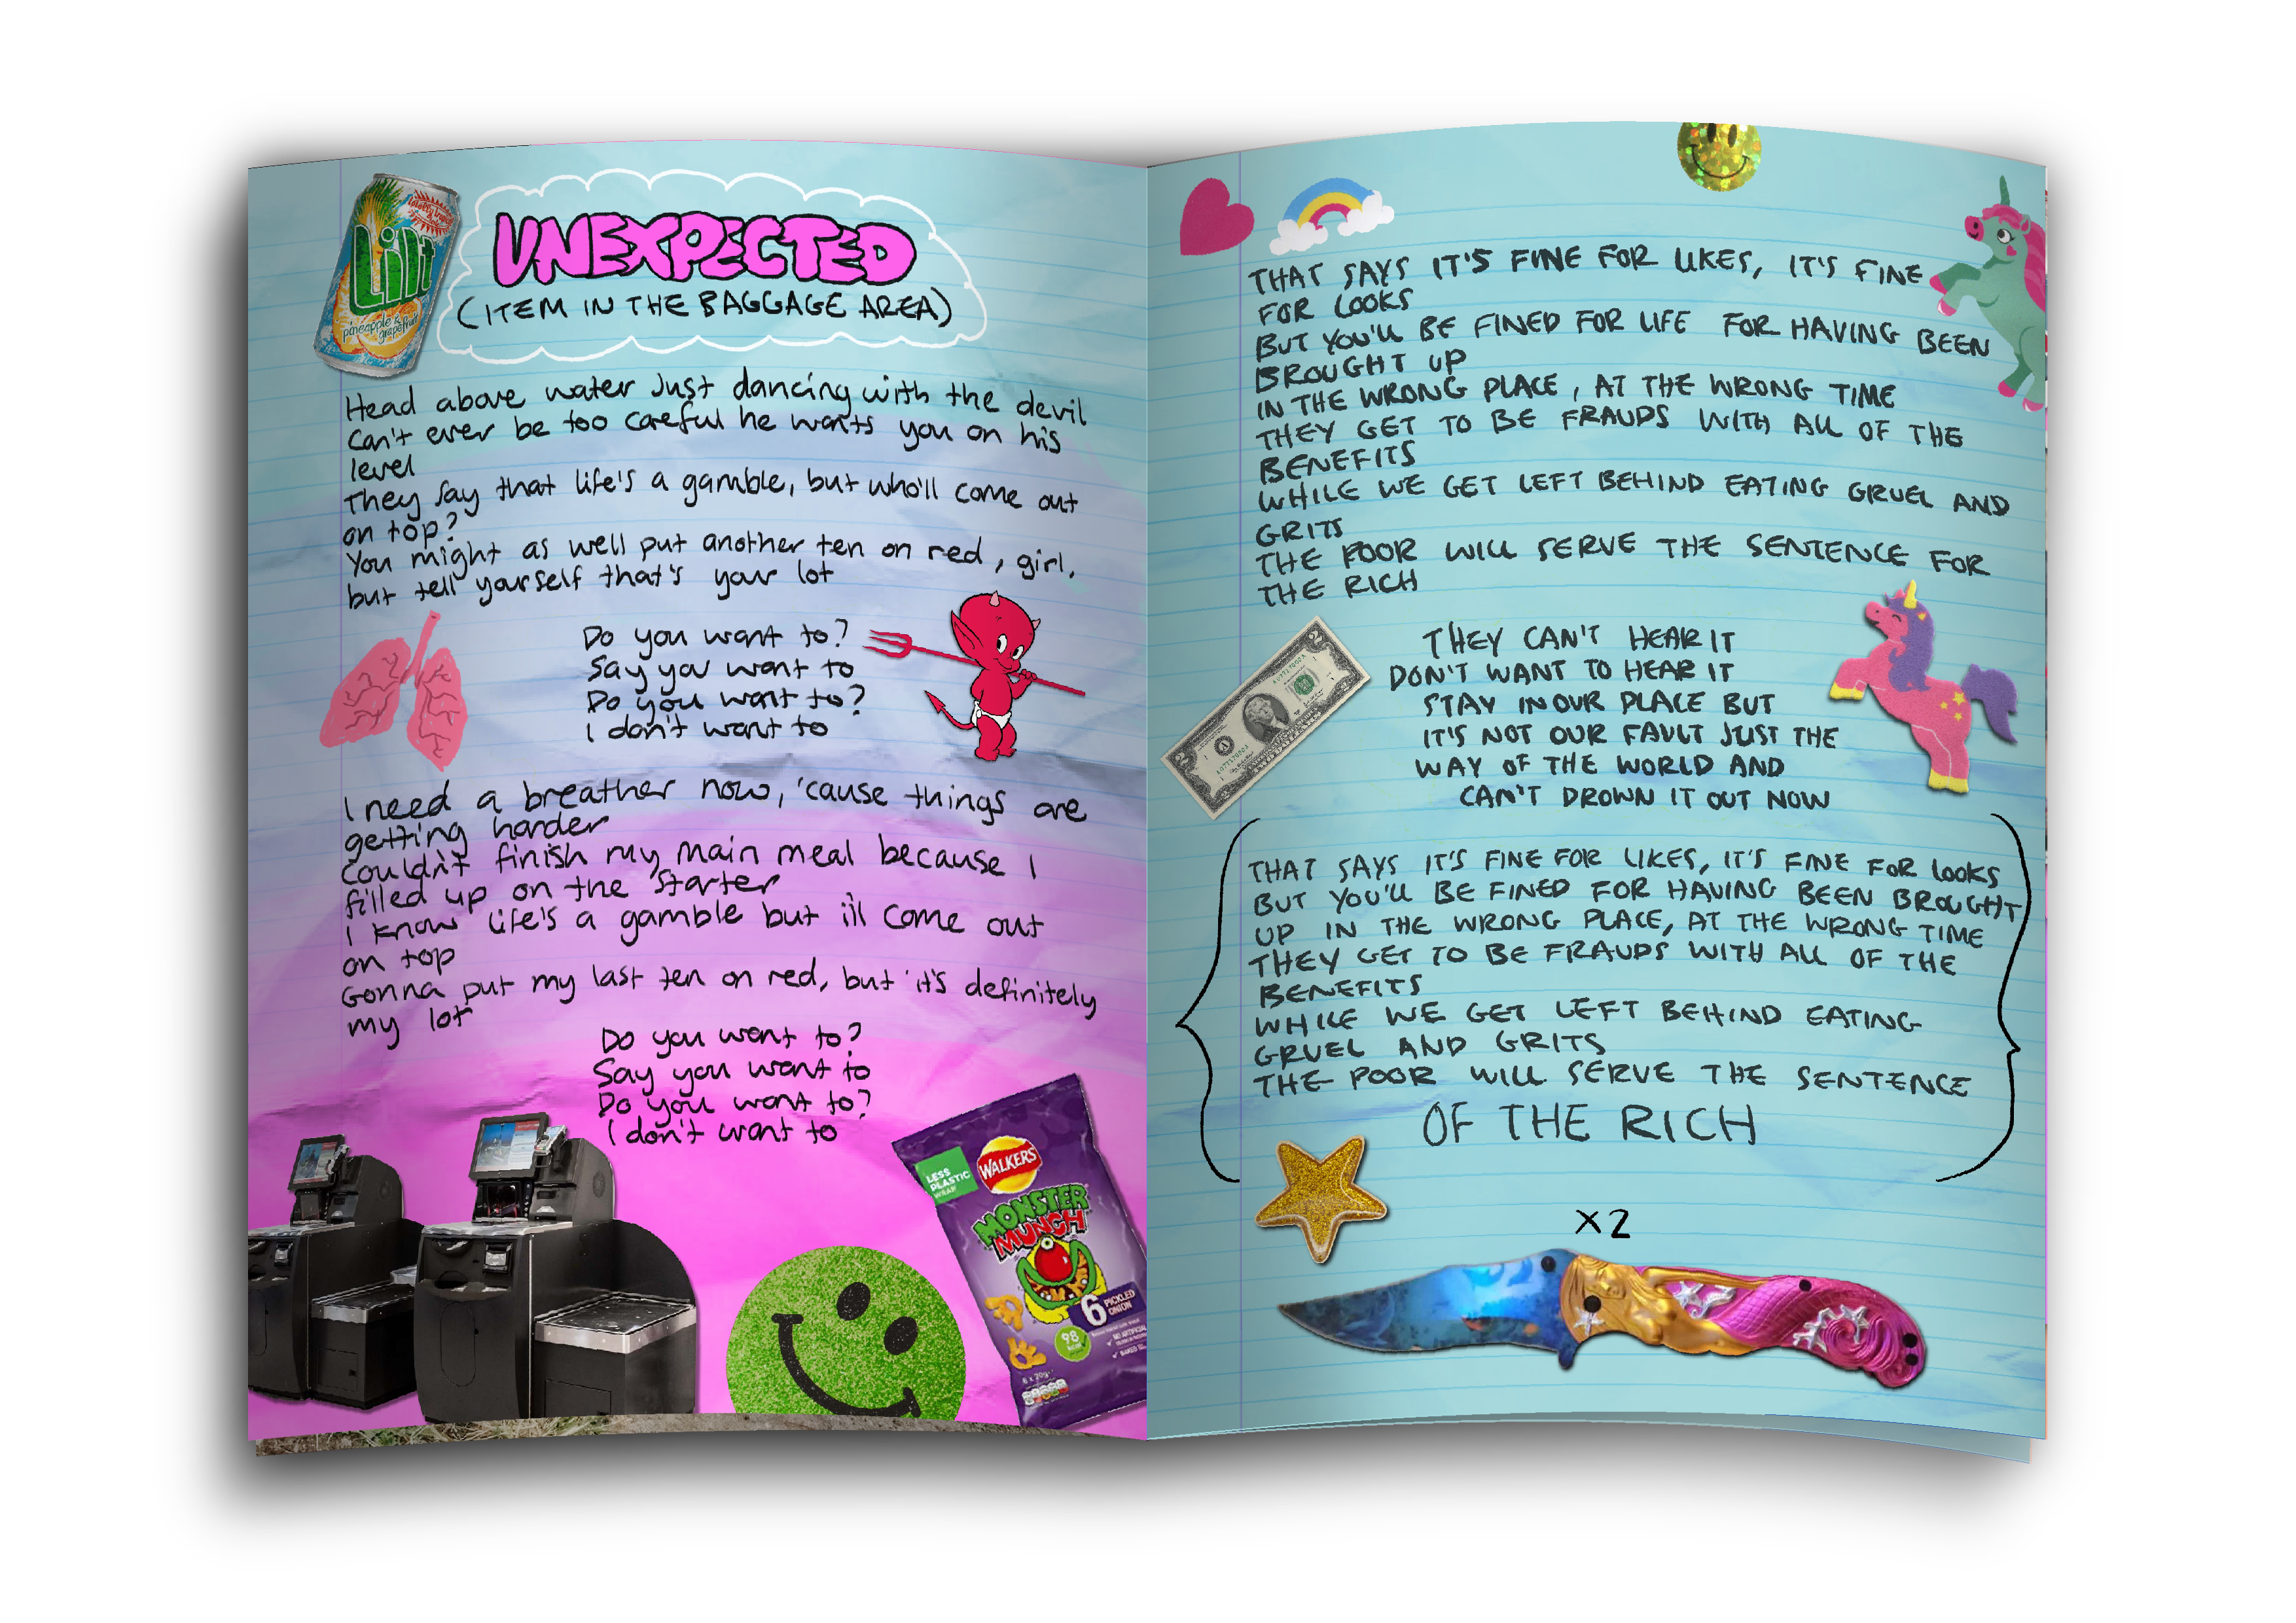 Lilt
pineapple &
grapefruit
UNEXPECTED
(ITEM IN THE BAGGAGE AREA)
Head above water just dancing with the devil
Can't ever be too careful he wants you on his
level
They say that life's a gamble, but who'll come out
on top?
You might as well put another ten on red, girl,
but tell yourself that's your lot
Do you want to?
Say you want to
Do you want to?
I don't want to
I need a breather now, 'cause things are
getting harder
Couldn't finish my main meal because I
filled up on the starter
I know life's a gamble but i'll come out
on top
Gonna put my last ten on red, but it's definitely
my lot
Do you want to?
Say you want to
Do you want to?
I don't want to
LESS
PLASTIC
WRAP
WALKERS
MONSTER
MUNCH
6 PICKLED
ONION
98
THAT SAYS IT'S FINE FOR LIKES, IT'S FINE
FOR LOOKS
BUT YOU'LL BE FINED FOR LIFE FOR HAVING BEEN
BROUGHT UP
IN THE WRONG PLACE, AT THE WRONG TIME
THEY GET TO BE FRAUDS WITH ALL OF THE
BENEFITS
WHILE WE GET LEFT BEHIND EATING GRUEL AND
GRITS
THE POOR WILL SERVE THE SENTENCE FOR
THE RICH
THEY CAN'T HEAR IT
DON'T WANT TO HEAR IT
STAY IN OUR PLACE BUT
IT'S NOT OUR FAULT JUST THE
WAY OF THE WORLD AND
CAN'T DROWN IT OUT NOW
THAT SAYS IT'S FINE FOR LIKES, IT'S FINE FOR looks
BUT YOU'LL BE FINED FOR HAVING BEEN BROUGHT
UP IN THE WRONG PLACE, AT THE WRONG TIME
THEY GET TO BE FRAUDS WITH ALL OF THE
BENEFITS
WHILE WE GET LEFT BEHIND EATING
GRUEL AND GRITS
THE POOR WILL SERVE THE SENTENCE
OF THE RICH
x2